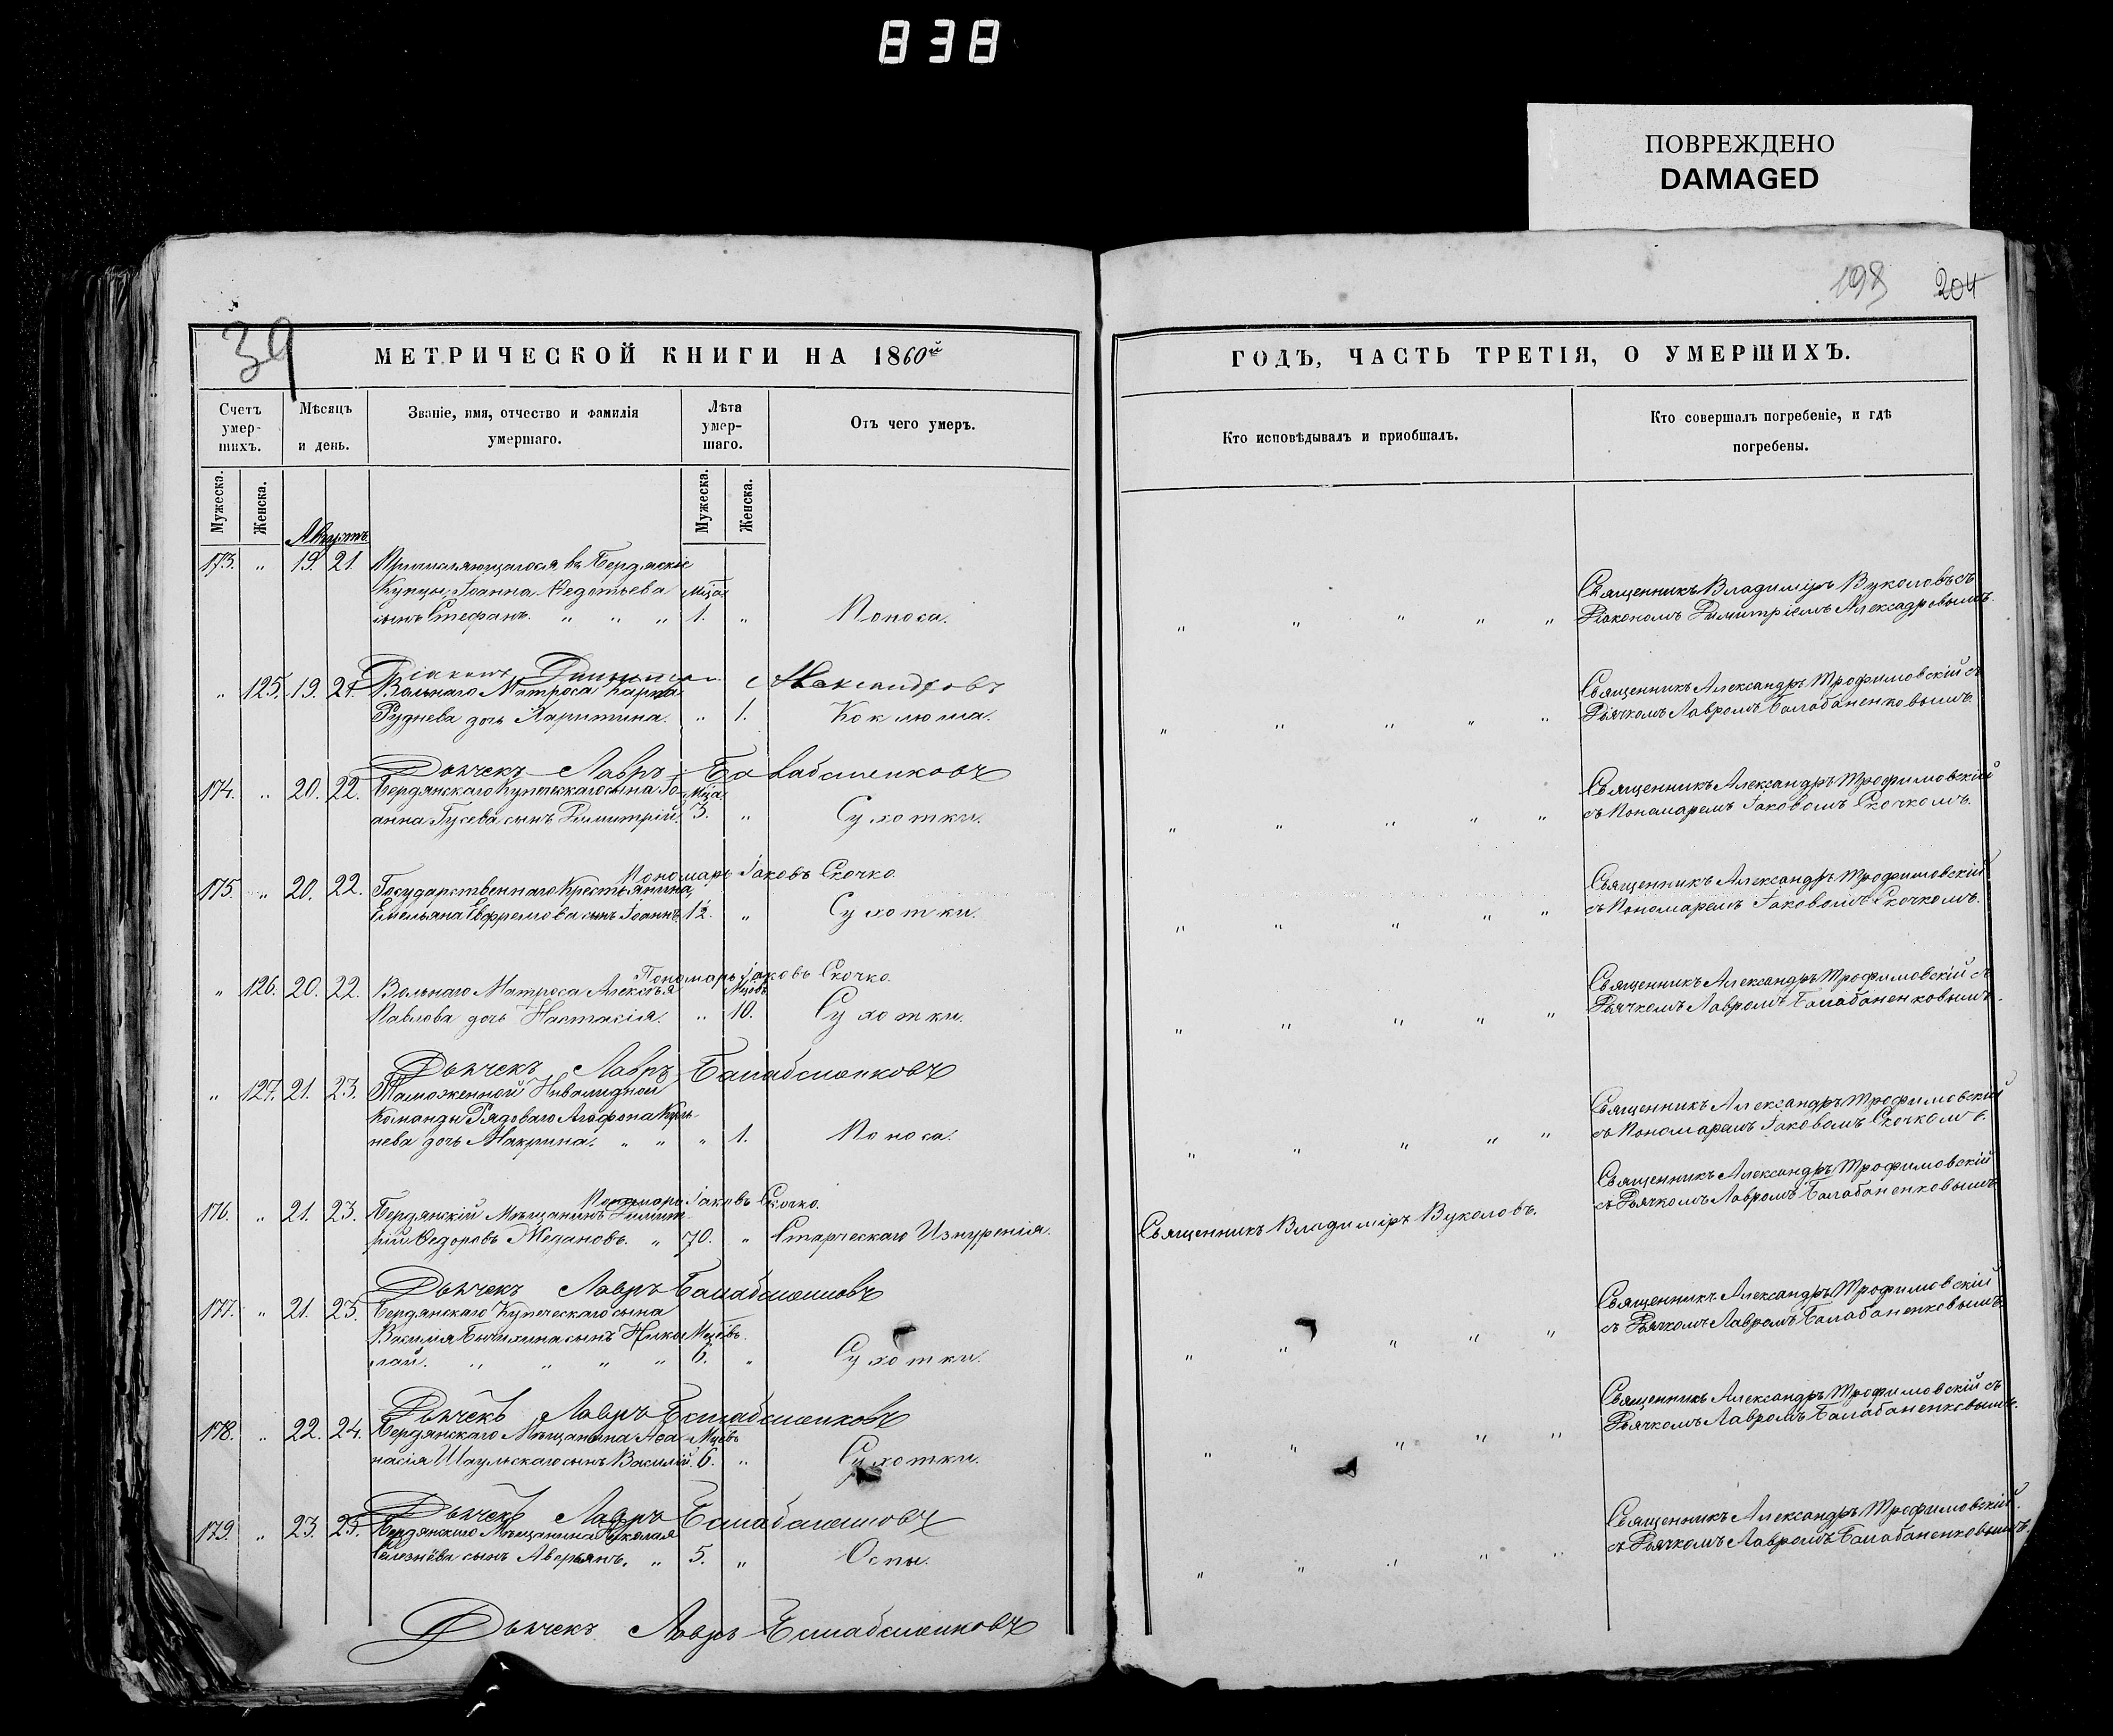 838
ПОВРЕЖДЕНО
DAMAGED
39
198 204
МЕТРИЧЕСКОЙ КНИГИ НА 1860й
ГОДЪ, ЧАСТЬ ТРЕТІЯ, О УМЕРШИХЪ.
Счетъ умер-шихъ.
Мѣсяцъ и день.
Званіе, имя, отчество и фамилія умершаго.
Лѣта умер-шаго.
Отъ чего умеръ.
Кто исповѣдывалъ и приобшалъ.
Кто совершалъ погребеніе, и гдѣ погребены.
Мужеска. Женска. Мужеска. Женска.
Августъ
173. " 19. 21. Причисляющагося въ Бердянскіе
Купцы, Іоанна Федотьева
сынъ Стефанъ. " " " 1. " Поноса. " " " " "
Священникъ Владиміръ Вуколовъ съ
Діакономъ Димитріемъ Алексадровымъ.
Діаконъ Димитрій Александровъ
" 125. 19. 21. Вольнаго Матроса Карпа
Руднева дочь Харитина. " 1. Коклюша. " " " "
Священникъ Александръ Трофимовскій съ
Дьячкомъ Лавромъ Балабаненковымъ.
Дьячекъ Лавръ Балабаненковъ
174. " 20. 22. Бердянскаго Купеческаго сына Іо-
анна Гусева сынъ Димитрій. 3. " Сухотки. " " " " "
Священникъ Александръ Трофимовскій
съ Пономаремъ Іаковомъ Скочкомъ.
Пономарь Іаковъ Скочко.
175. " 20. 22. Государственнаго Крестьянина
Емельяна Евфремова сынъ Іоаннъ. 12. " Сухотки. " " " " "
Священникъ Александръ Трофимовскій
съ Пономаремъ Іаковомъ Скочкомъ.
Пономарь Іаковъ Скочко.
" 126. 20. 22. Вольнаго Матроса Алексѣя Мцовъ
Павлова дочь Настасія. " 10. Сухотки. " " " " "
Священникъ Александръ Трофимовскій съ
Дьячкомъ Лавромъ Балабаненковымъ.
Дьячекъ Лавръ Балабаненковъ
" 127. 21. 23. Таможенной Инвалидной
Команды Рядоваго Агафона
нева дочь Макрина. " " " 1. Поноса. " " " " "
Священникъ Александръ Трофимовскій
съ Пономаремъ Іаковомъ Скочкомъ.
Пономарь Іаковъ Скочко.
176. " 21. 23. Бердянскій Мѣщанинъ Димит-
рій Федоровъ Жедановъ. " 70. " Старческаго Изнуренія.
Священникъ Владиміръ Вуколовъ.
Священникъ Александръ Трофимовскій
съ Дьячкомъ Лавромъ Балабаненковымъ
Дьячекъ Лавръ Балабаненковъ
177. " 21. 23. Бердянскаго Купеческаго сына
Василія Бычихина сынъ Нико- Мцовъ.
лай. " " " " 6. " Сухотки. " " " " "
Священникъ Александръ Трофимовскій
съ Дьячкомъ Лавромъ Балабаненковымъ.
Дьячекъ Лавръ Балабаненковъ
178. " 22. 24. Бердянскаго Мѣщанина Афа- Мцовъ
насія Шаульскаго сынъ Василій. 6. " Сухотки. " " " " "
Священникъ Александръ Трофимовскій съ
Дьячкомъ Лавромъ Балабаненковымъ.
Дьячекъ Лавръ Балабаненковъ
179. " 23. 25. Бердянскаго Мѣщанина Николая
Селезнёва сынъ Аверьянъ. " 5. " Оспы. " " " " "
Священникъ Александръ Трофимовскій.
съ Дьячкомъ Лавромъ Балабаненковымъ.
Дьячекъ Лавръ Балабаненковъ